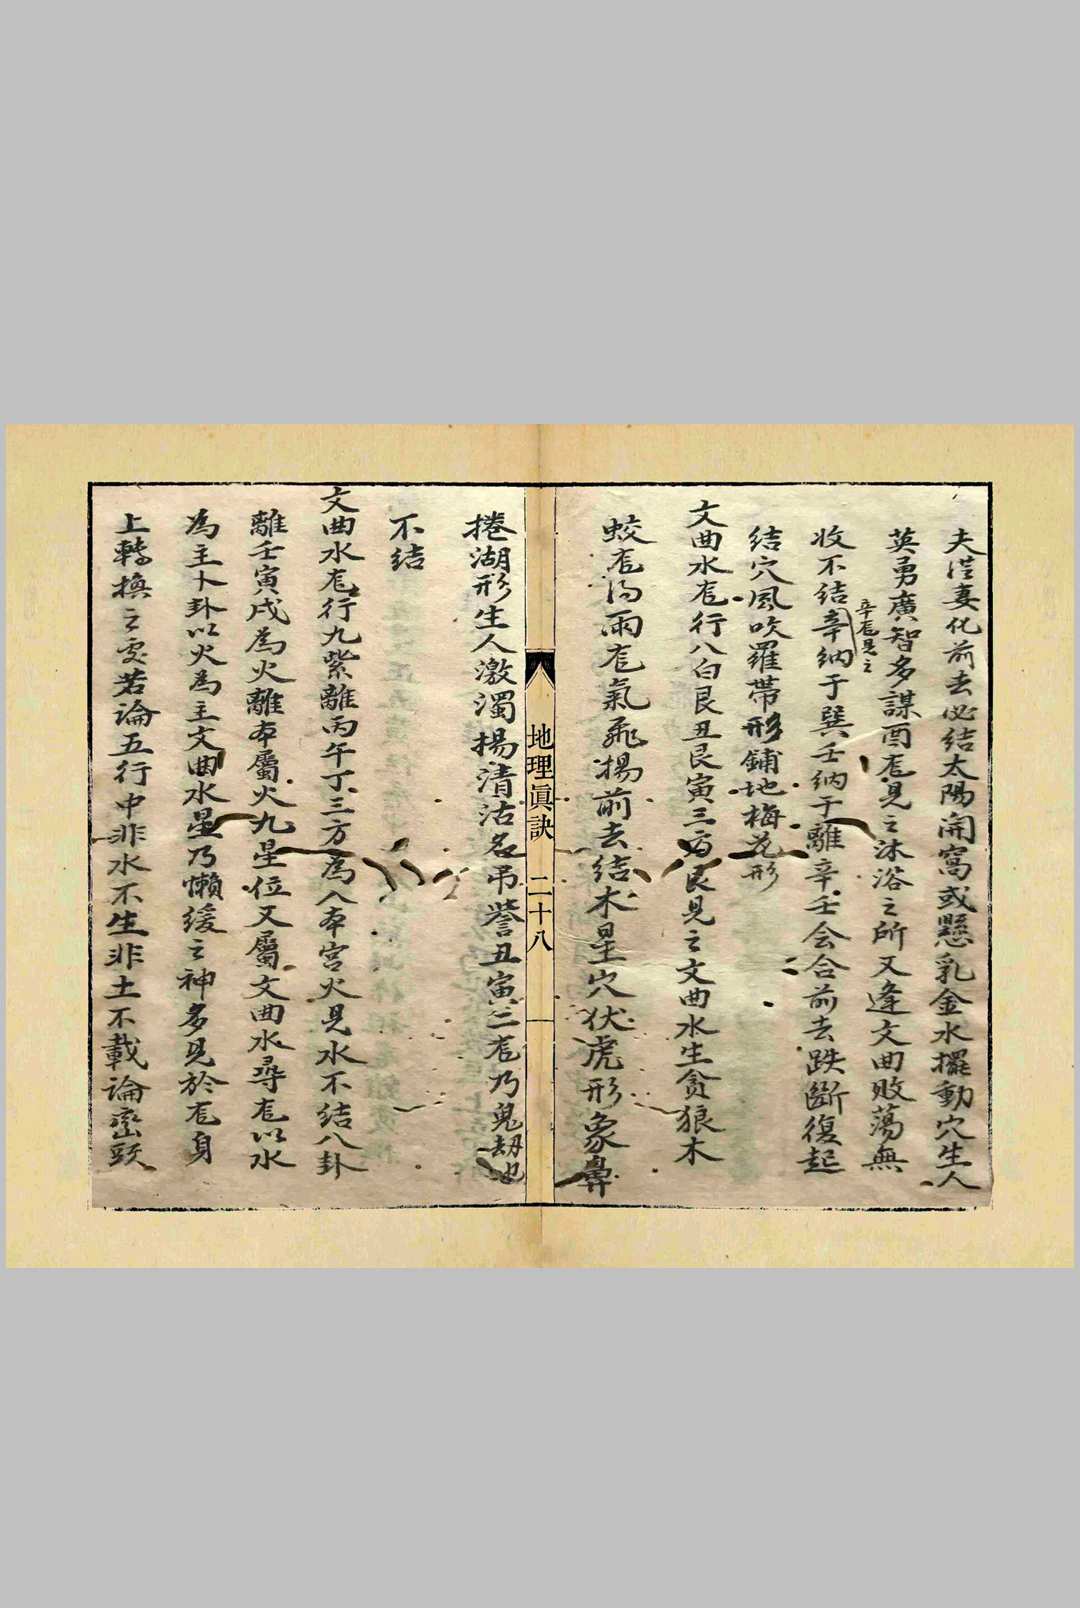 夫從妻化前去必結太陽開窩或懸乳金水擺動穴生人
英勇廣智多謀酉龙見之沐浴之所又逢文曲敗蕩無
收不結辛納于巽壬納于離辛壬会合前去跌斷復起
辛龙見之
結穴風吹羅帶形鋪地梅花形
文曲水龙行八白艮丑艮寅三方艮見之文曲水生貪狼木
蛟龙得雨龙氣飛揚前去結木星穴伏虎形象鼻
地理真訣 二十八
捲湖形生人激濁揚清沽名吊譽丑寅二龙乃鬼劫也
不結
文曲水龙行九紫離丙午丁三方為八本宮火見水不結八卦
離壬寅戌為火離本屬火九星位又屬文曲水尋龙以水
為主卜卦以火為主文曲水星乃懶緩之神多見於龙身
上轉換之处若論五行中非水不生非土不載論巒頭